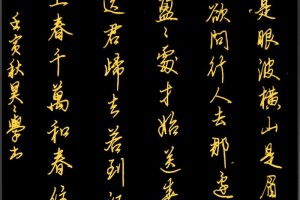 是眼波橫山是眉
欲問行人去那邊
盈〻處才始送春
送君歸去若到江
上春千萬和春住
壬寅秋昊學